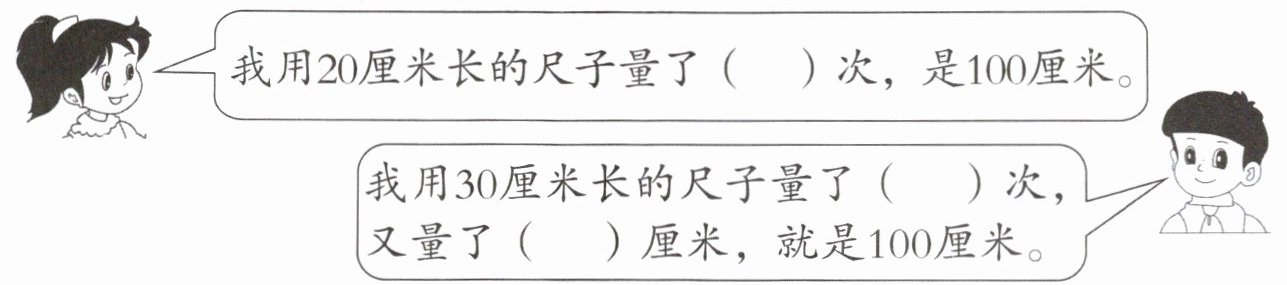 我用20厘米长的尺子量了（　）次，是100厘米。
我用30厘米长的尺子量了（　）次，
又量了（　）厘米，就是100厘米。